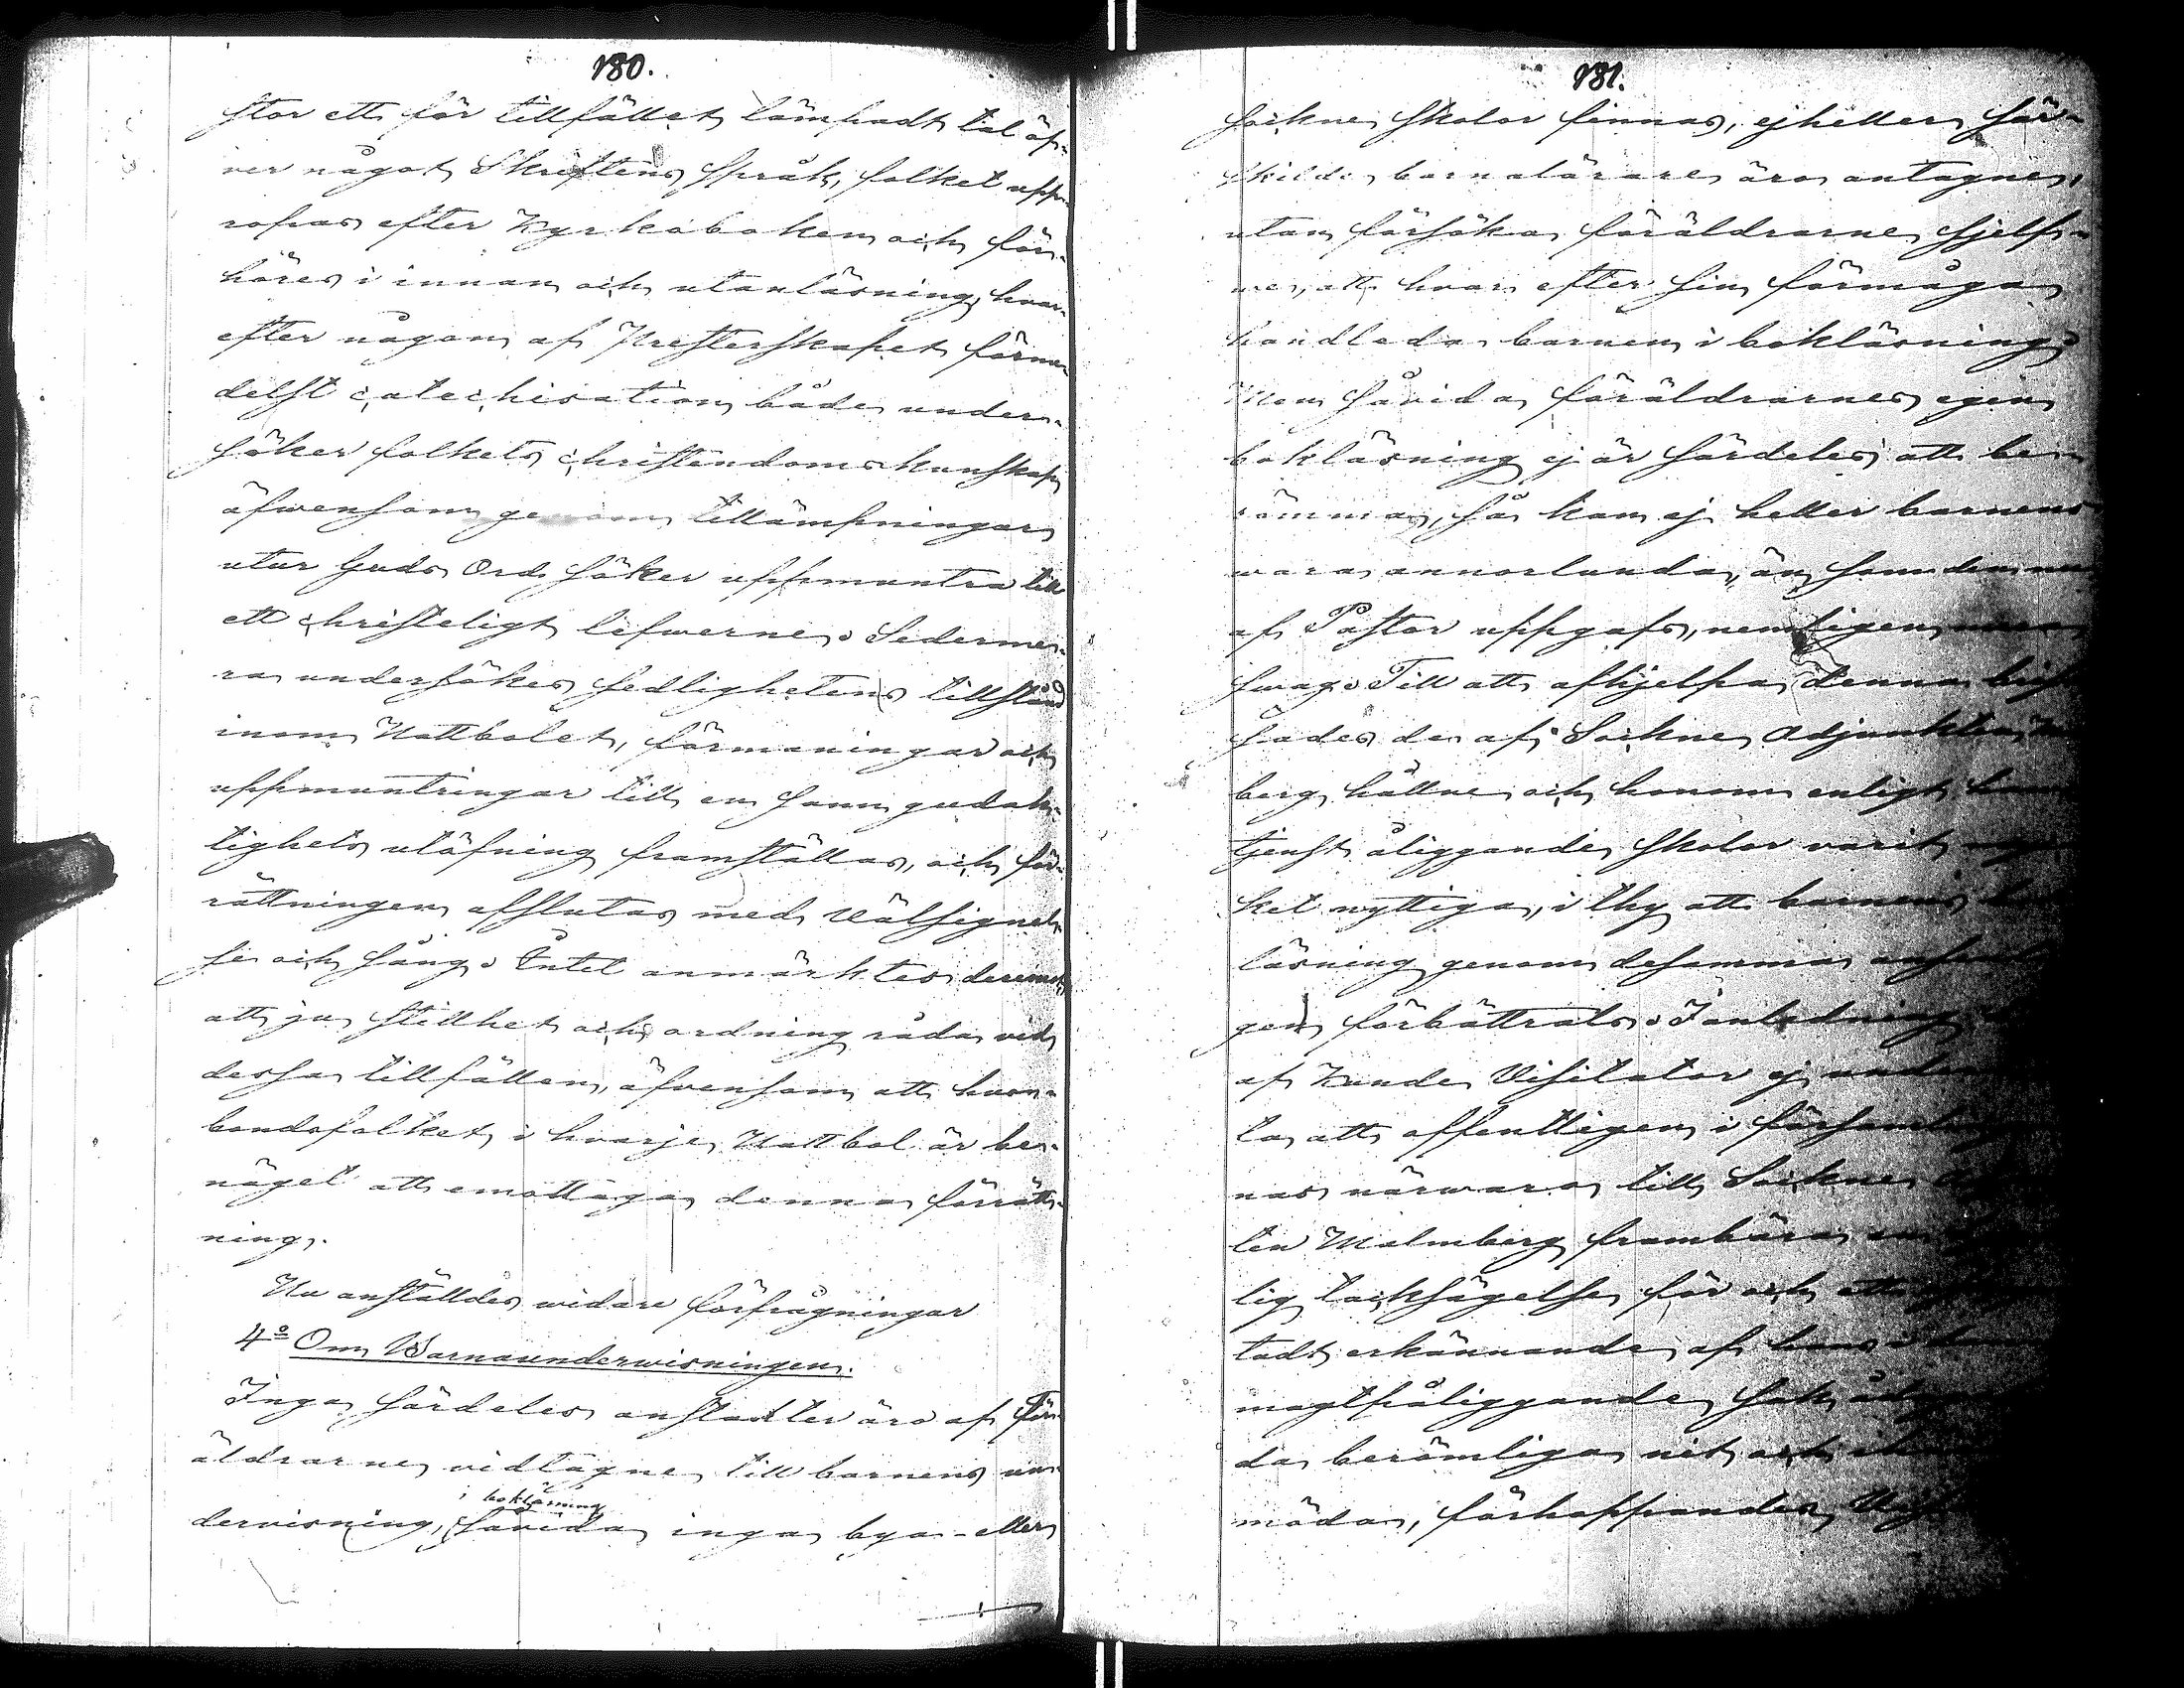 180.
stor ett för tillfället lämpadt tal öf-
ver något Skriftens språk, folket upp-
ropas efter Kyrkoboken och för-
höres i innan och utanläsning, hvar-
efter någon af Presterskapet förme-
delst catechisation både under-
söker folkets christendoms kunskap
äfwensom genom tillämpningar
utur Guds Ord söker uppmuntra till
ett christeligt lefwerne. Sederme-
ra undersökes sedlighetens tillstånd
inom Nattbolet, förmaningar och
uppmuntringar till en sann gudak-
tighets utöfning framställas, och för-
rättningen afslutas med Välsignel-
se och sång. Intet anmärktes deremot,
att ju stillhet och ordning råda vid
dessa tillfällen, äfvensom att hus-
bondsfolket i hvarje Nattbol är be-
näget att emottaga denna förrätt-
ning.
Nu anställdes widare förfrågningar
4o Om Barnaunderwisningen.
Inga särdeles anstalter äro af För-
äldrarne vidtagne till barnens un-
i bokläsning
dervisning, såvida inga bya- eller
181.
Sockne skolor finnas, ej heller sär-
skilde barnalärare äro antagne,
utan försöka föräldrarne sjelf-
we, att hvar efter sin förmåga
handleda barnen i bokläsning;
Men såvida föräldrarnes egen
bokläsning ej är särdeles att be-
römma, så kan ej heller barnens
wara annorlunda, än som den nu
af Pastor uppgafs, nemligen
swag. Till att afhjelpa denna
hade de af Sockne Adjunkten
berg hållne och honom enligt
tjenst åliggande skolor varit
ket nyttiga, i thy att barnens
läsning genom desamma
gen förbättrats. I anledning
af kunde Visitator ej
ta att offentligen i
nas närwaro till Sockne
ten Malmberg frambära en
lig tacksägelse för och ett
tadt erkännande af hans i
magtpåliggande sak
da berömliga nit och
möda, förhoppandes